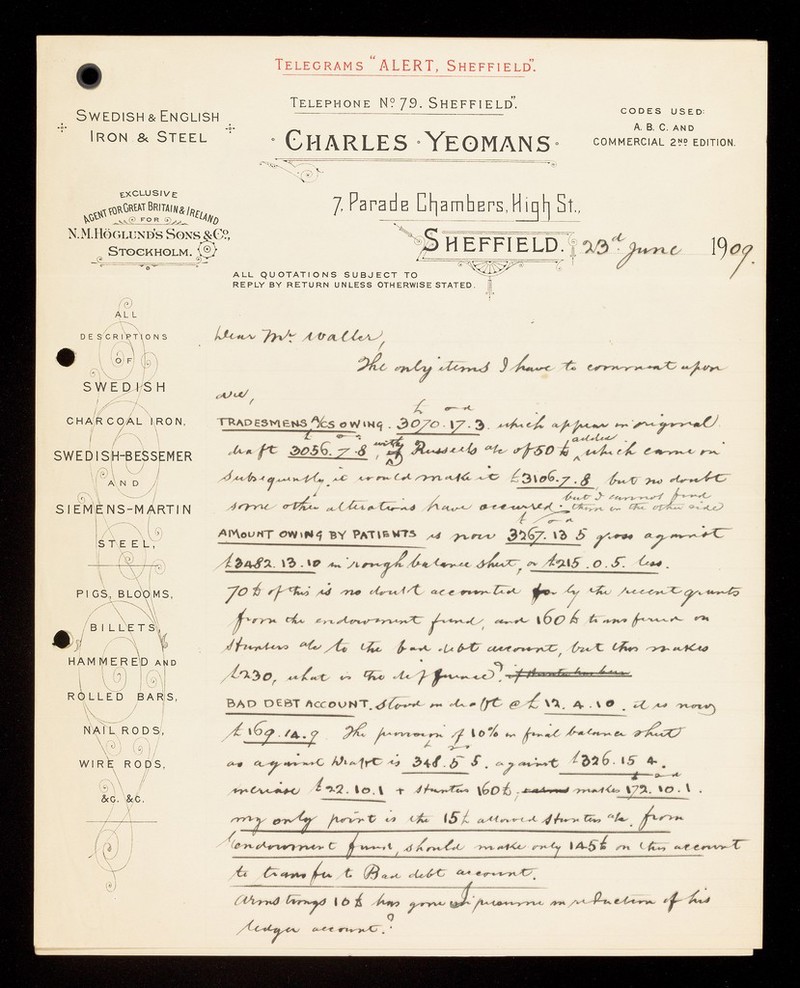 TELEGRAMS "ALERT, SHEFFIELD".
TELEPHONE No 79. SHEFFIELD".
SWEDISH & ENGLISH
IRON & STEEL
CHARLES YEOMANS
CODES USED:
A. B. C. AND
COMMERCIAL 2ND EDITION.
EXCLUSIVE
AGENT FOR GREAT BRITAIN & IRELAND
FOR
N.M. HÖGLUND'S SONS & Co,
STOCKHOLM.
7, Parade Chambers, High St.,
SHEFFIELD. 23d June 1909.
ALL QUOTATIONS SUBJECT TO
REPLY BY RETURN UNLESS OTHERWISE STATED.
ALL
DESCRIPTIONS
OF
SWEDISH
CHARCOAL IRON,
SWEDISH-BESSEMER
AND
SIEMENS-MARTIN
STEEL,
PIGS, BLOOMS,
BILLETS,
HAMMERED AND
ROLLED BARS,
NAIL RODS,
WIRE RODS,
&c. &c.
Dear Mr. Waller,
The only items I have to comment upon
are,
£ s d
TRADESMENS A/CS OWING. 3070.17.3. which appear in original
draft 3056.7.8, with Russells a/c of 50£ added which came in
subsequently, it would make it £3106.7.8, but no doubt
some other alterations have occurred: but I cannot find them on the other side
£ s d
AMOUNT OWING BY PATIENTS is now 3267.13 5 gross against
£3482.13.10 in rough balance sheet, or £215.0.5. less.
70£ of this is no doubt accounted for by the recent grants
from the endowment fund, and 160£ transferred on
Stunters a/c to the bad debt account, but this makes
£230, what is the difference?
BAD DEBT ACCOUNT. stood in draft @ £12.4.10. it is now
£169.14.9 The provision of 10% in final balance sheet
as against draft is 348.5 5. against £326.15 4.
£ s d
increase £22.10.1 + Stunters 160£, makes 172.10.1.
my only point is the 15£ allowed Stunters a/c. from
Endowment fund, should make only 145£ on this account
to transfer to Bad debt account.
Armstrongs 10£ has gone I presume in reduction of his
ledger account?